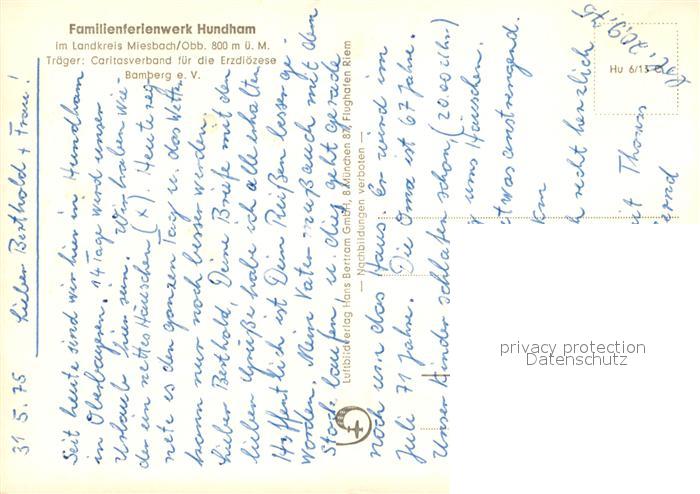 Familienferienwerk Hundham
im Landkreis Miesbach/Obb. 800 m ü. M.
Träger: Caritasverband für die Erzdiözese
Bamberg e. V.
31.5.75
Lieber Berthold + Frau!
Seit heute sind wir hier in Hundham
in Oberbayern. 14 Tag wird unser
Urlaub hier sein. Wir haben wie-
der ein nettes Häuschen (x). Heute reg-
nete es den ganzen Tag u. das Wetter
kann nur noch besser werden.
Lieber Berthold, Deine Briefe mit den
lieben Grüße habe ich alle erhalten.
Hoffentlich ist Dein Reißen besser ge-
worden. Mein Vater muß auch mit dem
Stock laufen, u. dies geht gerade
noch um das Haus. Er wird im
Juli 71 Jahre. Die Oma ist 67 Jahre.
Unser Kinder schlafen schon, (20.00 Uhr)
ums Häuschen.
etwas anstrengend.
Km
h recht herzlich
it Thomas
ernd
20.9.75
Hu 6/13
Luftbildverlag Hans Bertram GmbH, 8 München 87, Flughafen Riem
— Nachbildungen verboten —
privacy protection
Datenschutz